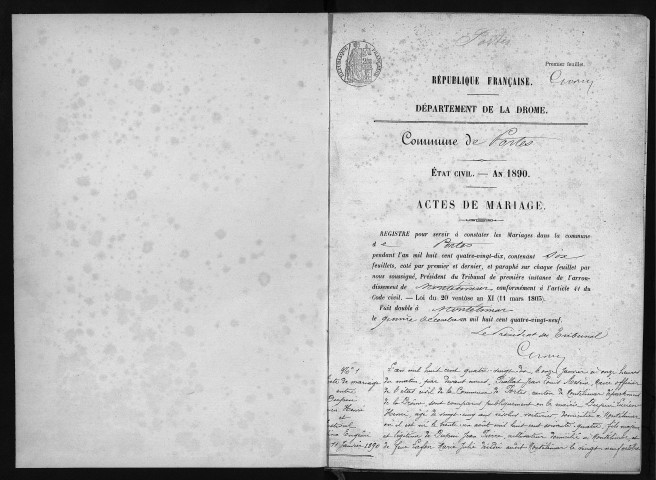 Portes
Premier feuillet.
RÉPUBLIQUE FRANÇAISE.
DÉPARTEMENT DE LA DROME.
Commune de Portes
ÉTAT CIVIL. — AN 1890.
ACTES DE MARIAGE.
REGISTRE pour servir à constater les Mariages dans la commune
de Portes
pendant l'an mil huit cent quatre-vingt-dix, contenant six
feuillets, coté par premier et dernier, et paraphé sur chaque feuillet par
nous soussigné, Président du Tribunal de première instance de l'arron-
dissement de Montélimar conformément à l'article 41 du
Code civil. — Loi du 20 ventôse an XI (11 mars 1803).
Fait double à Montélimar
le quinze décembre an mil huit cent quatre-vingt-neuf.
Le Président du Tribunal
N° 1
acte de mariage
entre
Henri
et
Eugénie
11 Janvier 1890
L'an mil huit cent quatre vingt dix le onze janvier à onze heures
du matin, par devant nous, Jean Louis Marie, Maire officier
de l'état civil de la Commune de Portes, canton de Montélimar département
de la Drôme, sont comparus publiquement en la mairie, Louis
Henri, âgé de vingt cinq ans révolus voiturier, domicilié à Montélimar
où il est né le trente un août mil huit cent soixante quatre, fils majeur
et légitime de Jean Pierre, cultivateur domicilié à Montélimar, et
de feue Marie Julie décédée audit Montélimar le vingt neuf octobre